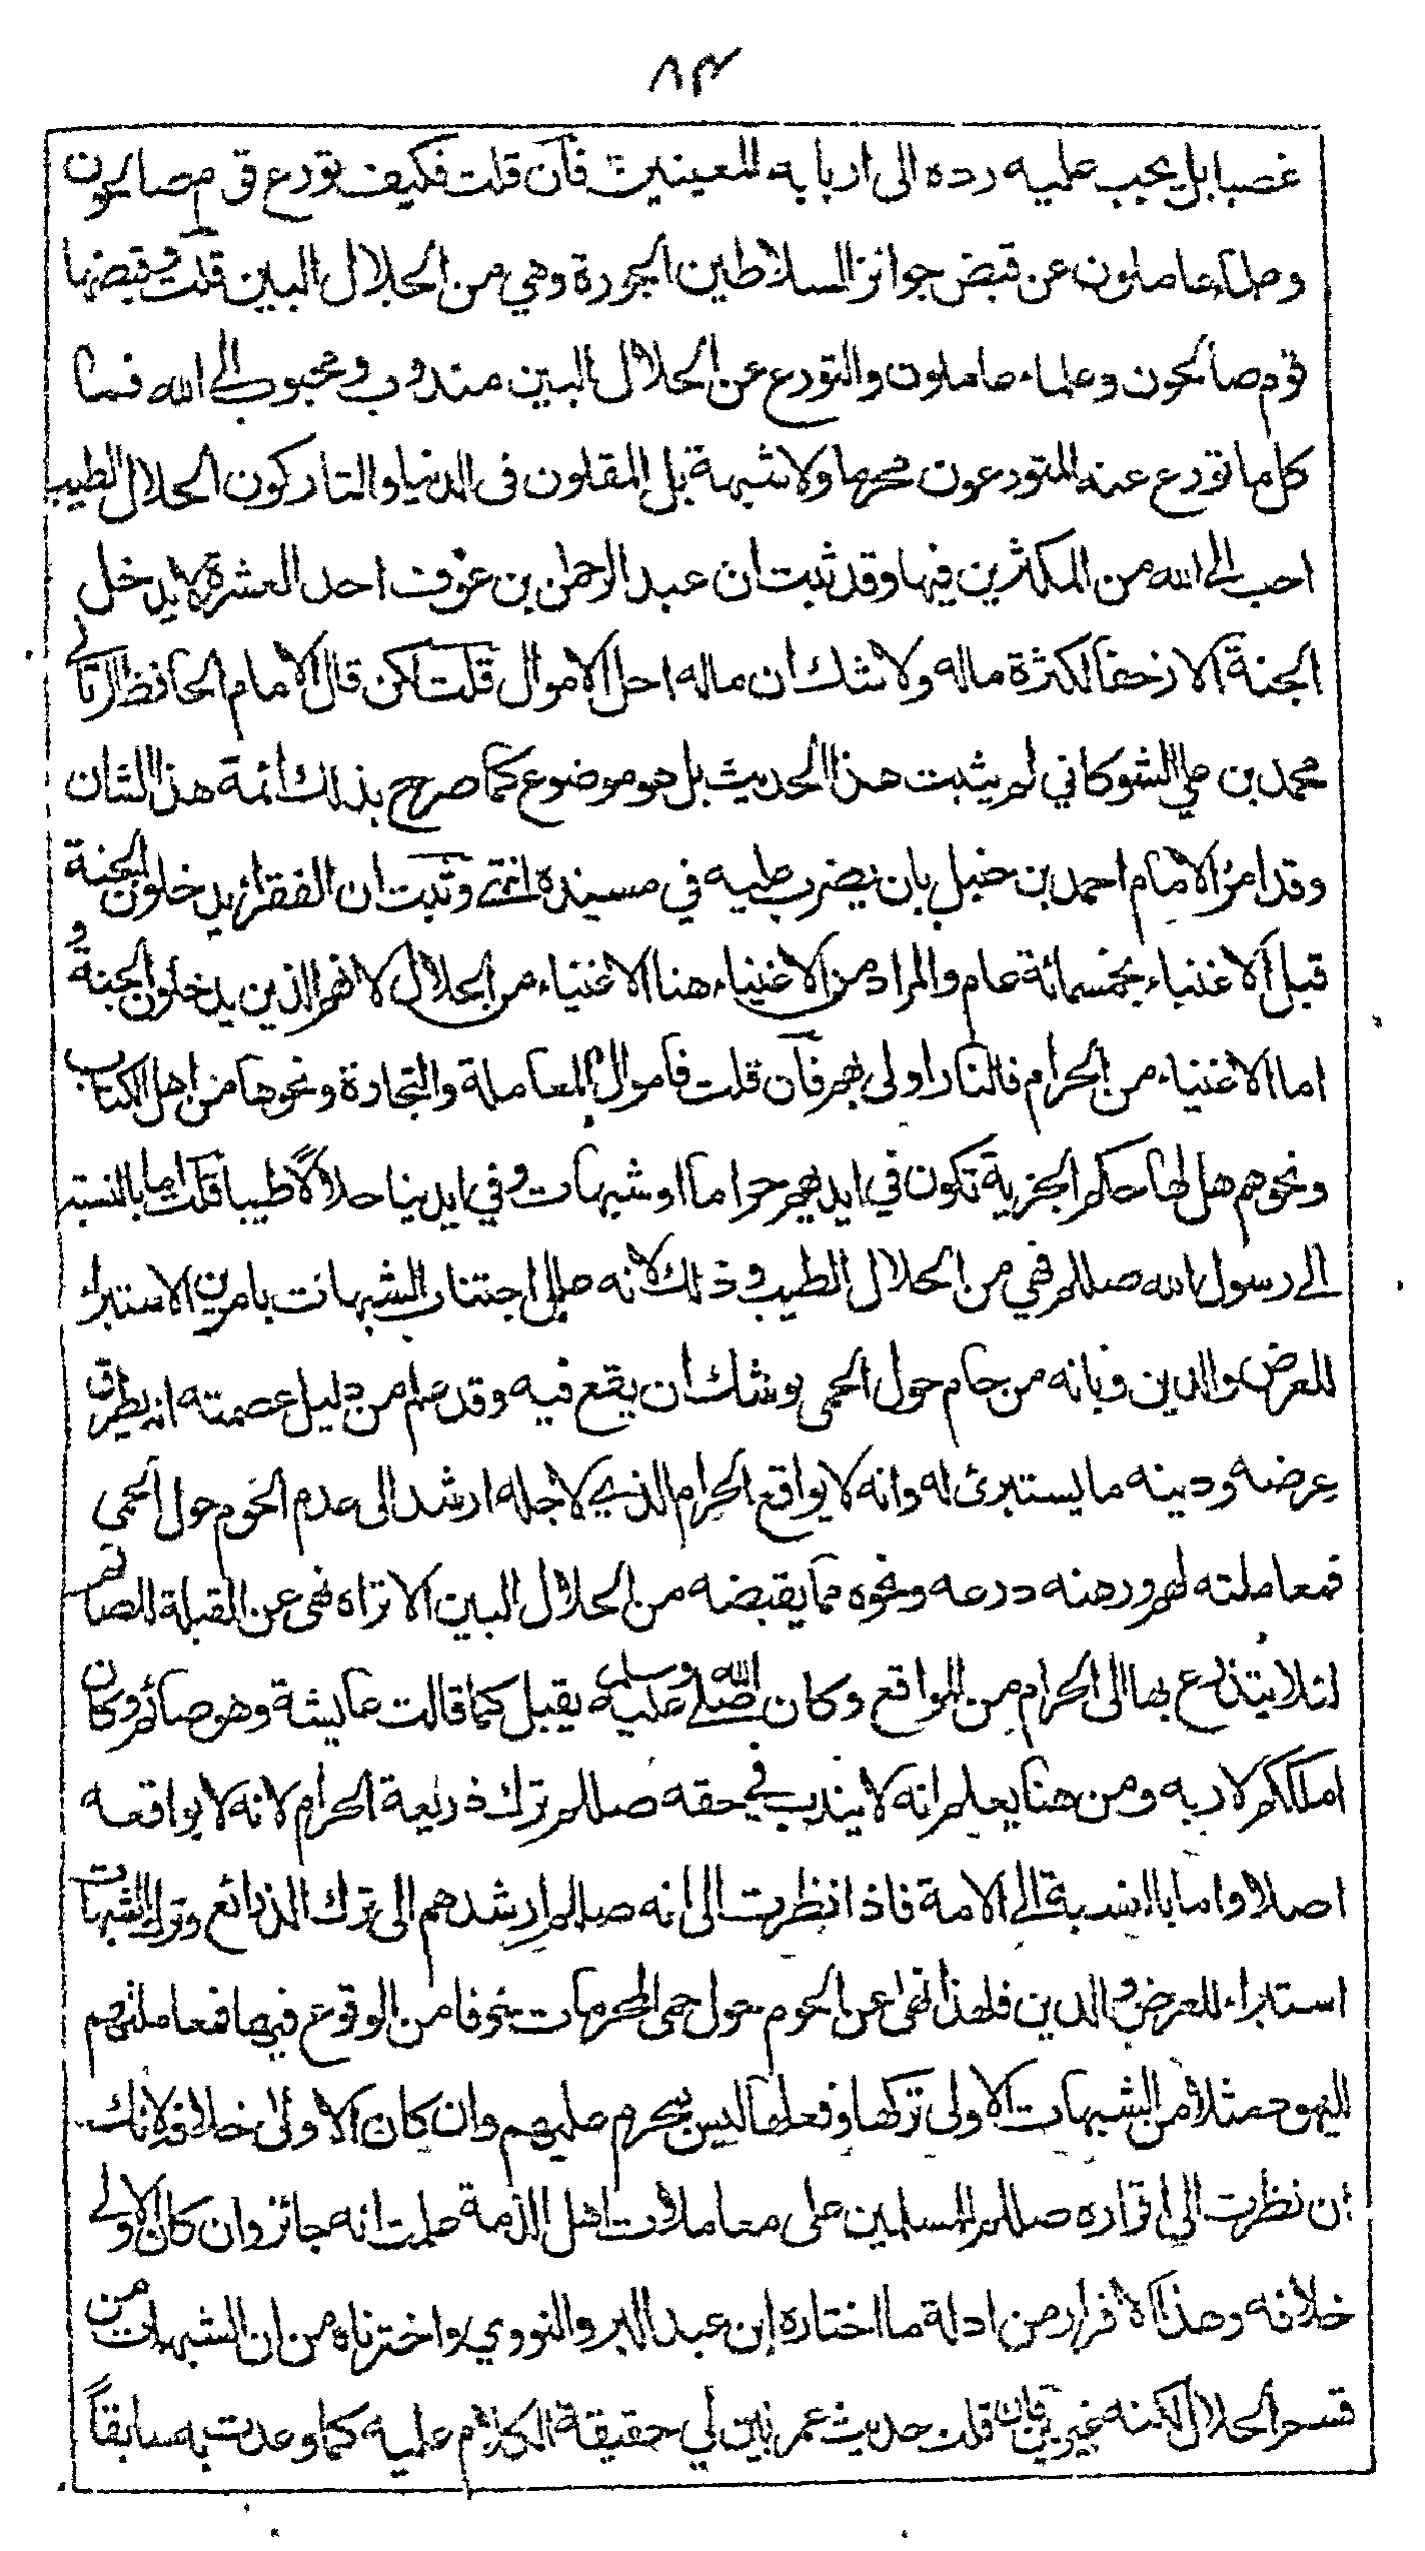 ٨٣
غصبا بل يجب عليه رده الى اربابه المعينين فان قلت فكيف تورع قوم صالحون
وعلماء عاملون عن قبض جوائز السلاطين الجورة وهي من الحلال البين قلت وقبضها
قوم صالحون وعلماء عاملون والتورع عن الحلال البين مندوب ومحبوب الى الله فما
كل ما تورع عنه المتورعون محرما ولا شبهة بل المقلون فى الدنيا والتاركون الحلال الطيب
احب الى الله من المكثرين فيها وقد ثبت ان عبد الرحمن بن عوف احد العشرة لا يدخل
الجنة الا زحفا لكثرة ماله ولا شك ان ماله احل الاموال قلت لكن قال الامام الحافظ الربانى
محمد بن علي الشوكاني لم يثبت هذا الحديث بل هو موضوع كما صرح بذلك ائمة هذا الشان
وقد امر الامام احمد بن حنبل بان يضرب عليه في مسنده انتهى وثبت ان الفقراء يدخلون الجنة
قبل الاغنياء بخمسمائة عام والمراد من الاغنياء هنا الاغنياء من الحلال لانهم الذين يدخلون الجنة و
اما الاغنياء من الحرام فالنار اولى بهم فان قلت فاموال المعاملة والتجارة ونحوها من اهل الكتاب
ونحوهم هل لها حكم الجزية تكون في ايديهم حراما او شبهات وفي ايدينا حلالاً طيبا قلت اما بالنسبة
الى رسول الله صللم فهي من الحلال الطيب وذلك لانه علل اجتناب الشبهات بامرين الاستبراء
للعرض والدين وبانه من حام حول الحمى يوشك ان يقع فيه وقد علم من دليل عصمته انه يطرق
عرضه ودينه ما يستبرئ له وانه لا يواقع الحرام الذي لاجله ارشد الى عدم الحوم حول الحمى
فمعاملته لهم ورهنه درعه ونحوه مما يقبضه من الحلال البين الا تراه نهى عن القبلة للصائم
لئلا يتذرع بها الى الحرام من الواقع وكان صلى الله عليه وسلم يقبل كما قالت عايشة وهو صائم وكان
املككم لاربه ومن هنا يعلم انه لا يندب في حقه صللم ترك ذريعة الحرام لانه لا يواقعه
اصلا واما بالنسبة الى الامة فاذا نظرت الى انه صللم ارشدهم الى ترك الذرائع وترك الشبهات
استبراء للعرض والدين فلهذا نهى عن الحوم حول حمى المحرمات خوفا من الوقوع فيها فمعاملتهم
اليهود مثلا من الشبهات الاولى تركها وفعلها ليس بمحرم عليهم وان كان الاولى خلافه لانك
ان نظرت الى اقراره صللم المسلمين على معاملات اهل الذمة علمت انه جائز وان كان الاولى
خلافه وهذا الاقرار من ادلة ما اختاره ابن عبد البر والنووي واخترناه من ان الشبهات من
قسم الحلال لكنه غير بين فان قلت حديث عمر نبين لي حقيقة الكلام عليه كما وعدت به سابقاً